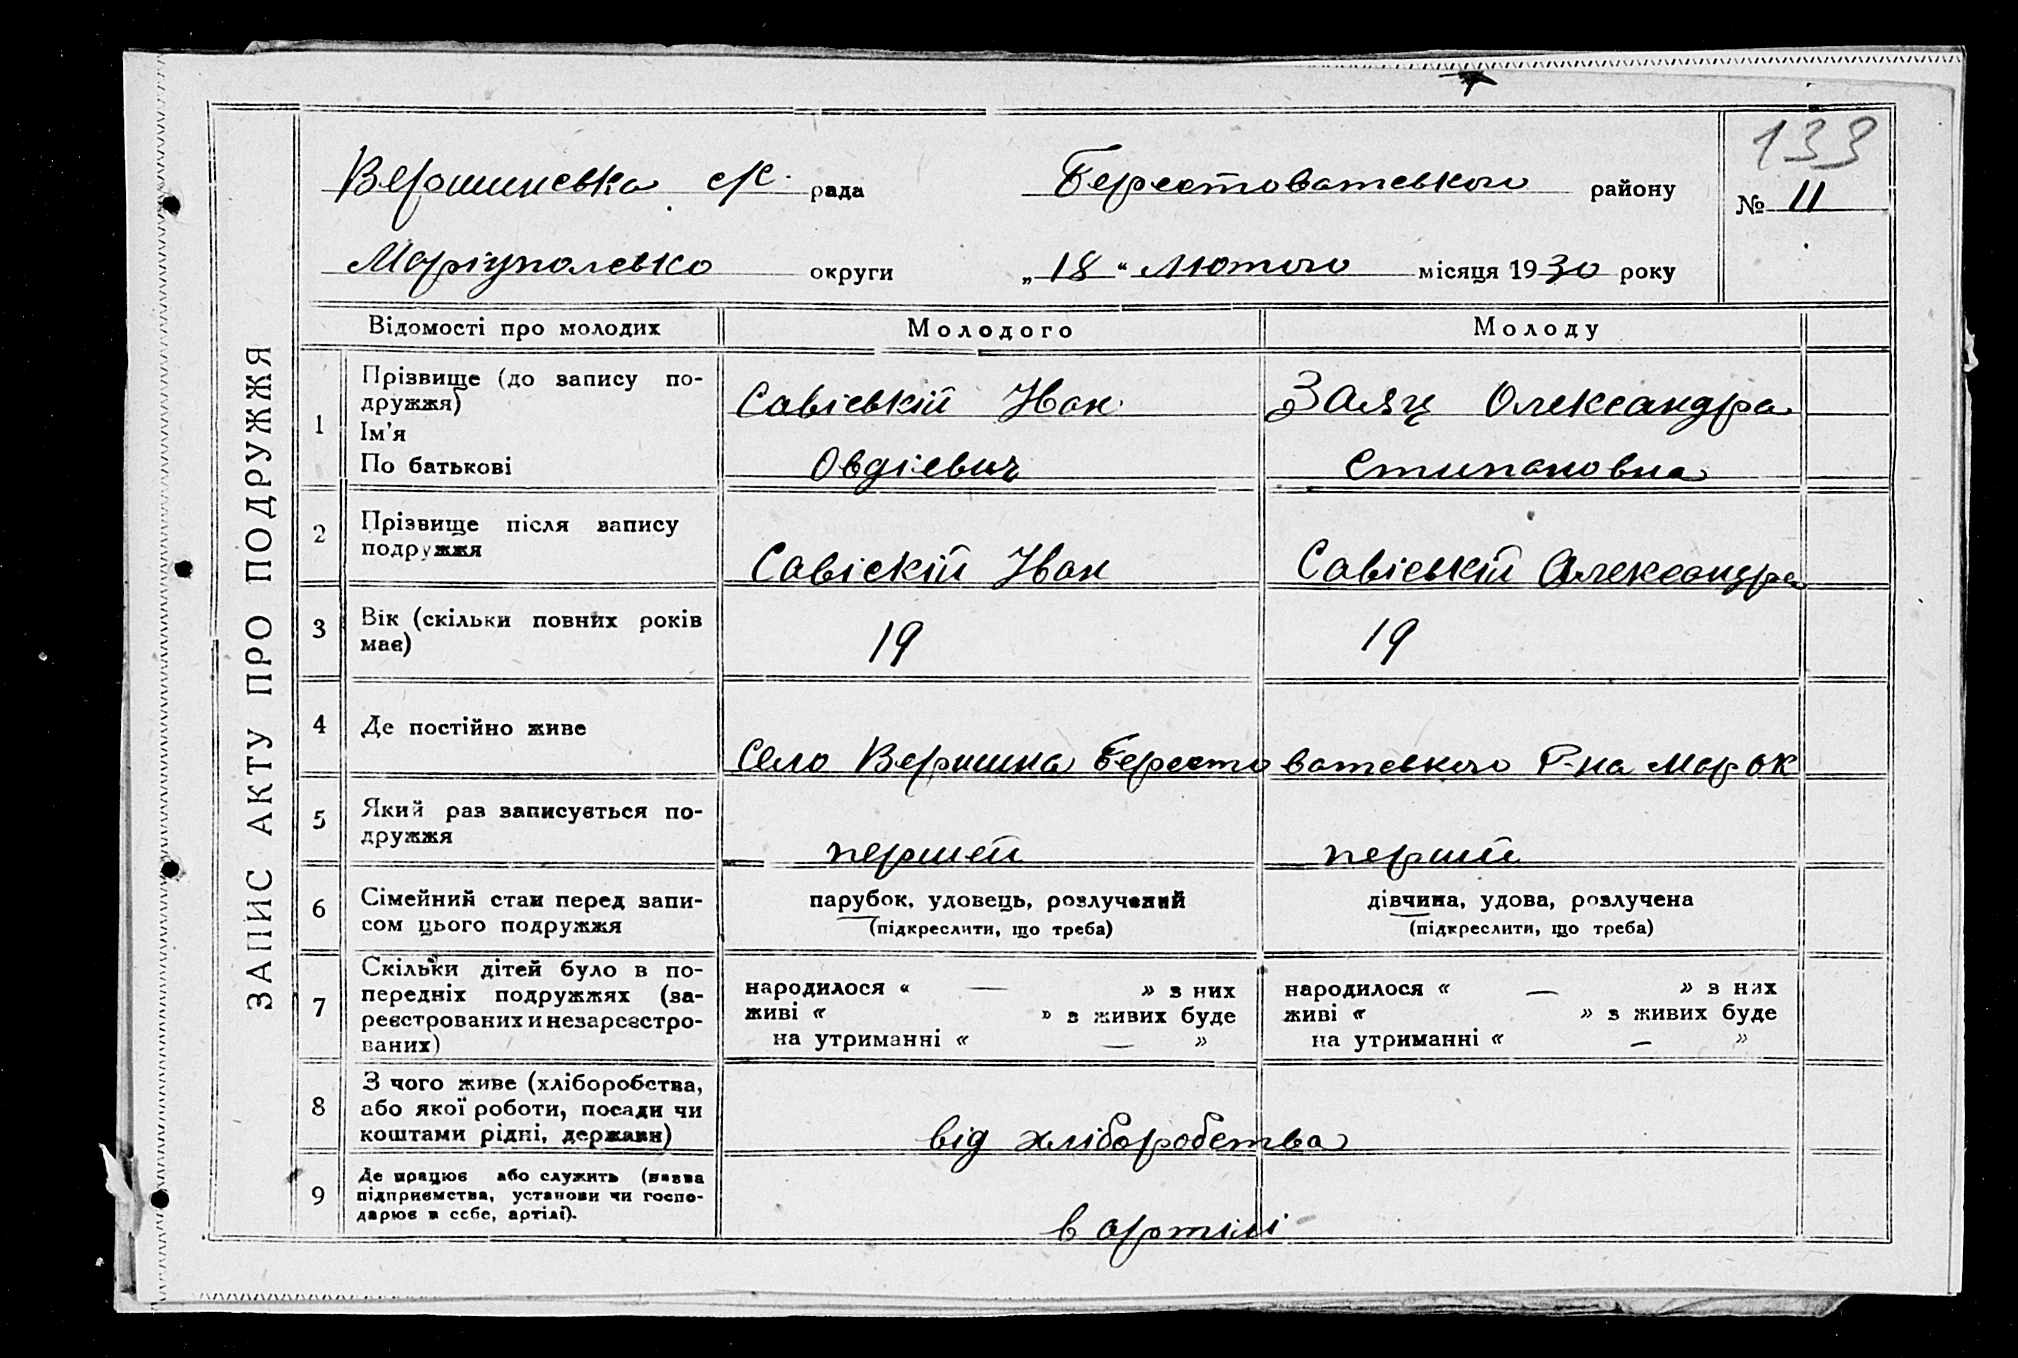 ЗАПИС АКТУ ПРО ПОДРУЖЖЯ
133
Вершинська с/с. рада Берестоватського району
№ 11
Маріупольско округи „18“ Лютого місяця 1930 року
Відомості про молодих Молодого Молоду
1 Прізвище (до запису по-
дружжя)
Ім'я
По батькові
Савіський Іван
Овдієвич
Заяц Олександра
Стипановна
2 Прізвище після запису
подружжя
Савіскій Іван
Савіській Александра
3 Вік (скільки повних років
має)
19 19
4 Де постійно живе
Село Вершина Берестоватського Р-на Мар ок
5 Який раз записується по-
дружжя
першей перший
6 Сімейний стан перед запи-
сом цього подружжя
парубок, удовець, розлучений
(підкреслити, що треба)
дівчина, удова, розлучена
(підкреслити, що треба)
7 Скільки дітей було в по-
передніх подружжях (за-
реєстрованих и незареєстро-
ваних)
народилося « — » з них
живі « » з живих буде
на утриманні « — »
народилося « — » з них
живі « » з живих буде
на утриманні « — »
8 З чого живе (хліборобства,
або якої роботи, посади чи
коштами рідні, держави)
від хліборобства
9 Де працює або служить (назва
підприємства, установи чи госпо-
дарює в себе, артілі).
в артілі